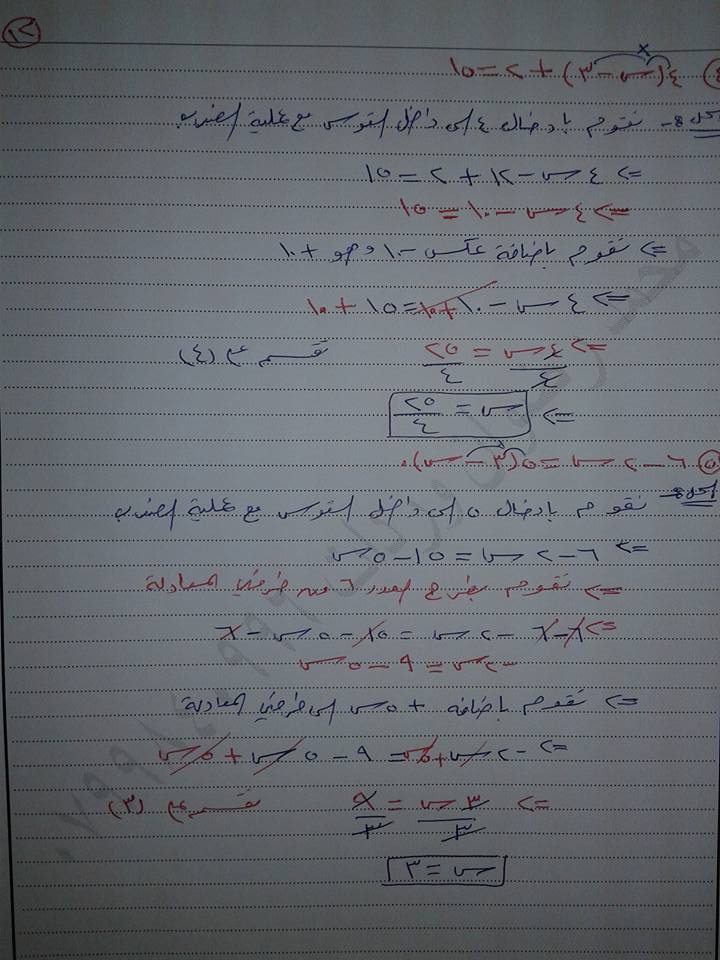 ١٢
٤) ٤(س-٣)+٢=١٥
الحل:- نقوم بإدخال ٤ إلى داخل القوس مع عملية الضرب
<= ٤س-١٢+٢=١٥
<= ٤س-١٠=١٥
<= نقوم بإضافة عكس -١٠ وهو +١٠
<= ٤س-١٠+١٠=١٥+١٠
<= ٤س/٤=٢٥/٤ نقسم ع (٤)
<= س=٢٥/٤
٥) ٦-٢س=٥(٣-س).
الحل:- نقوم بإدخال ٥ إلى داخل القوس مع عملية الضرب
<= ٦-٢س=١٥-٥س
<= نقوم بطرح العدد ٦ من طرفي المعادلة
<= ٦-٦-٢س=١٥-٥س-٦
-٢س=٩-٥س
<= نقوم بإضافه +٥س إلى طرفي المعادلة
<= -٢س+٥س=٩-٥س+٥س
<= ٣س/٣=٩/٣ نقسم ع (٣)
س=٣